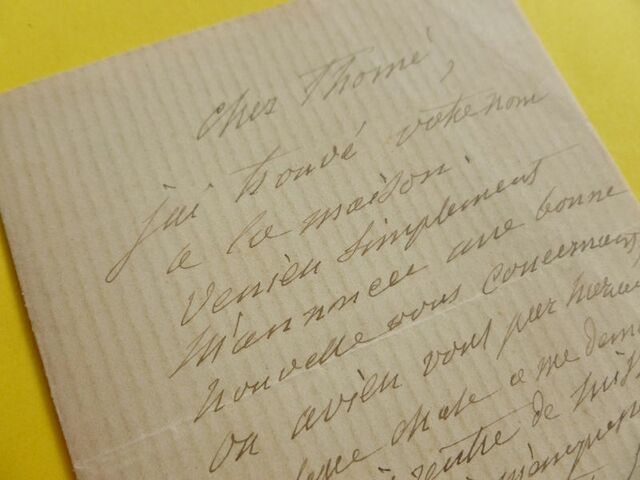 Cher Thomé,
j'ai trouvé votre nom
a la maison.
Veniez simplement
M'annoncer une bonne
nouvelle vous concernant,
ou aviez vous par
chose a me
de